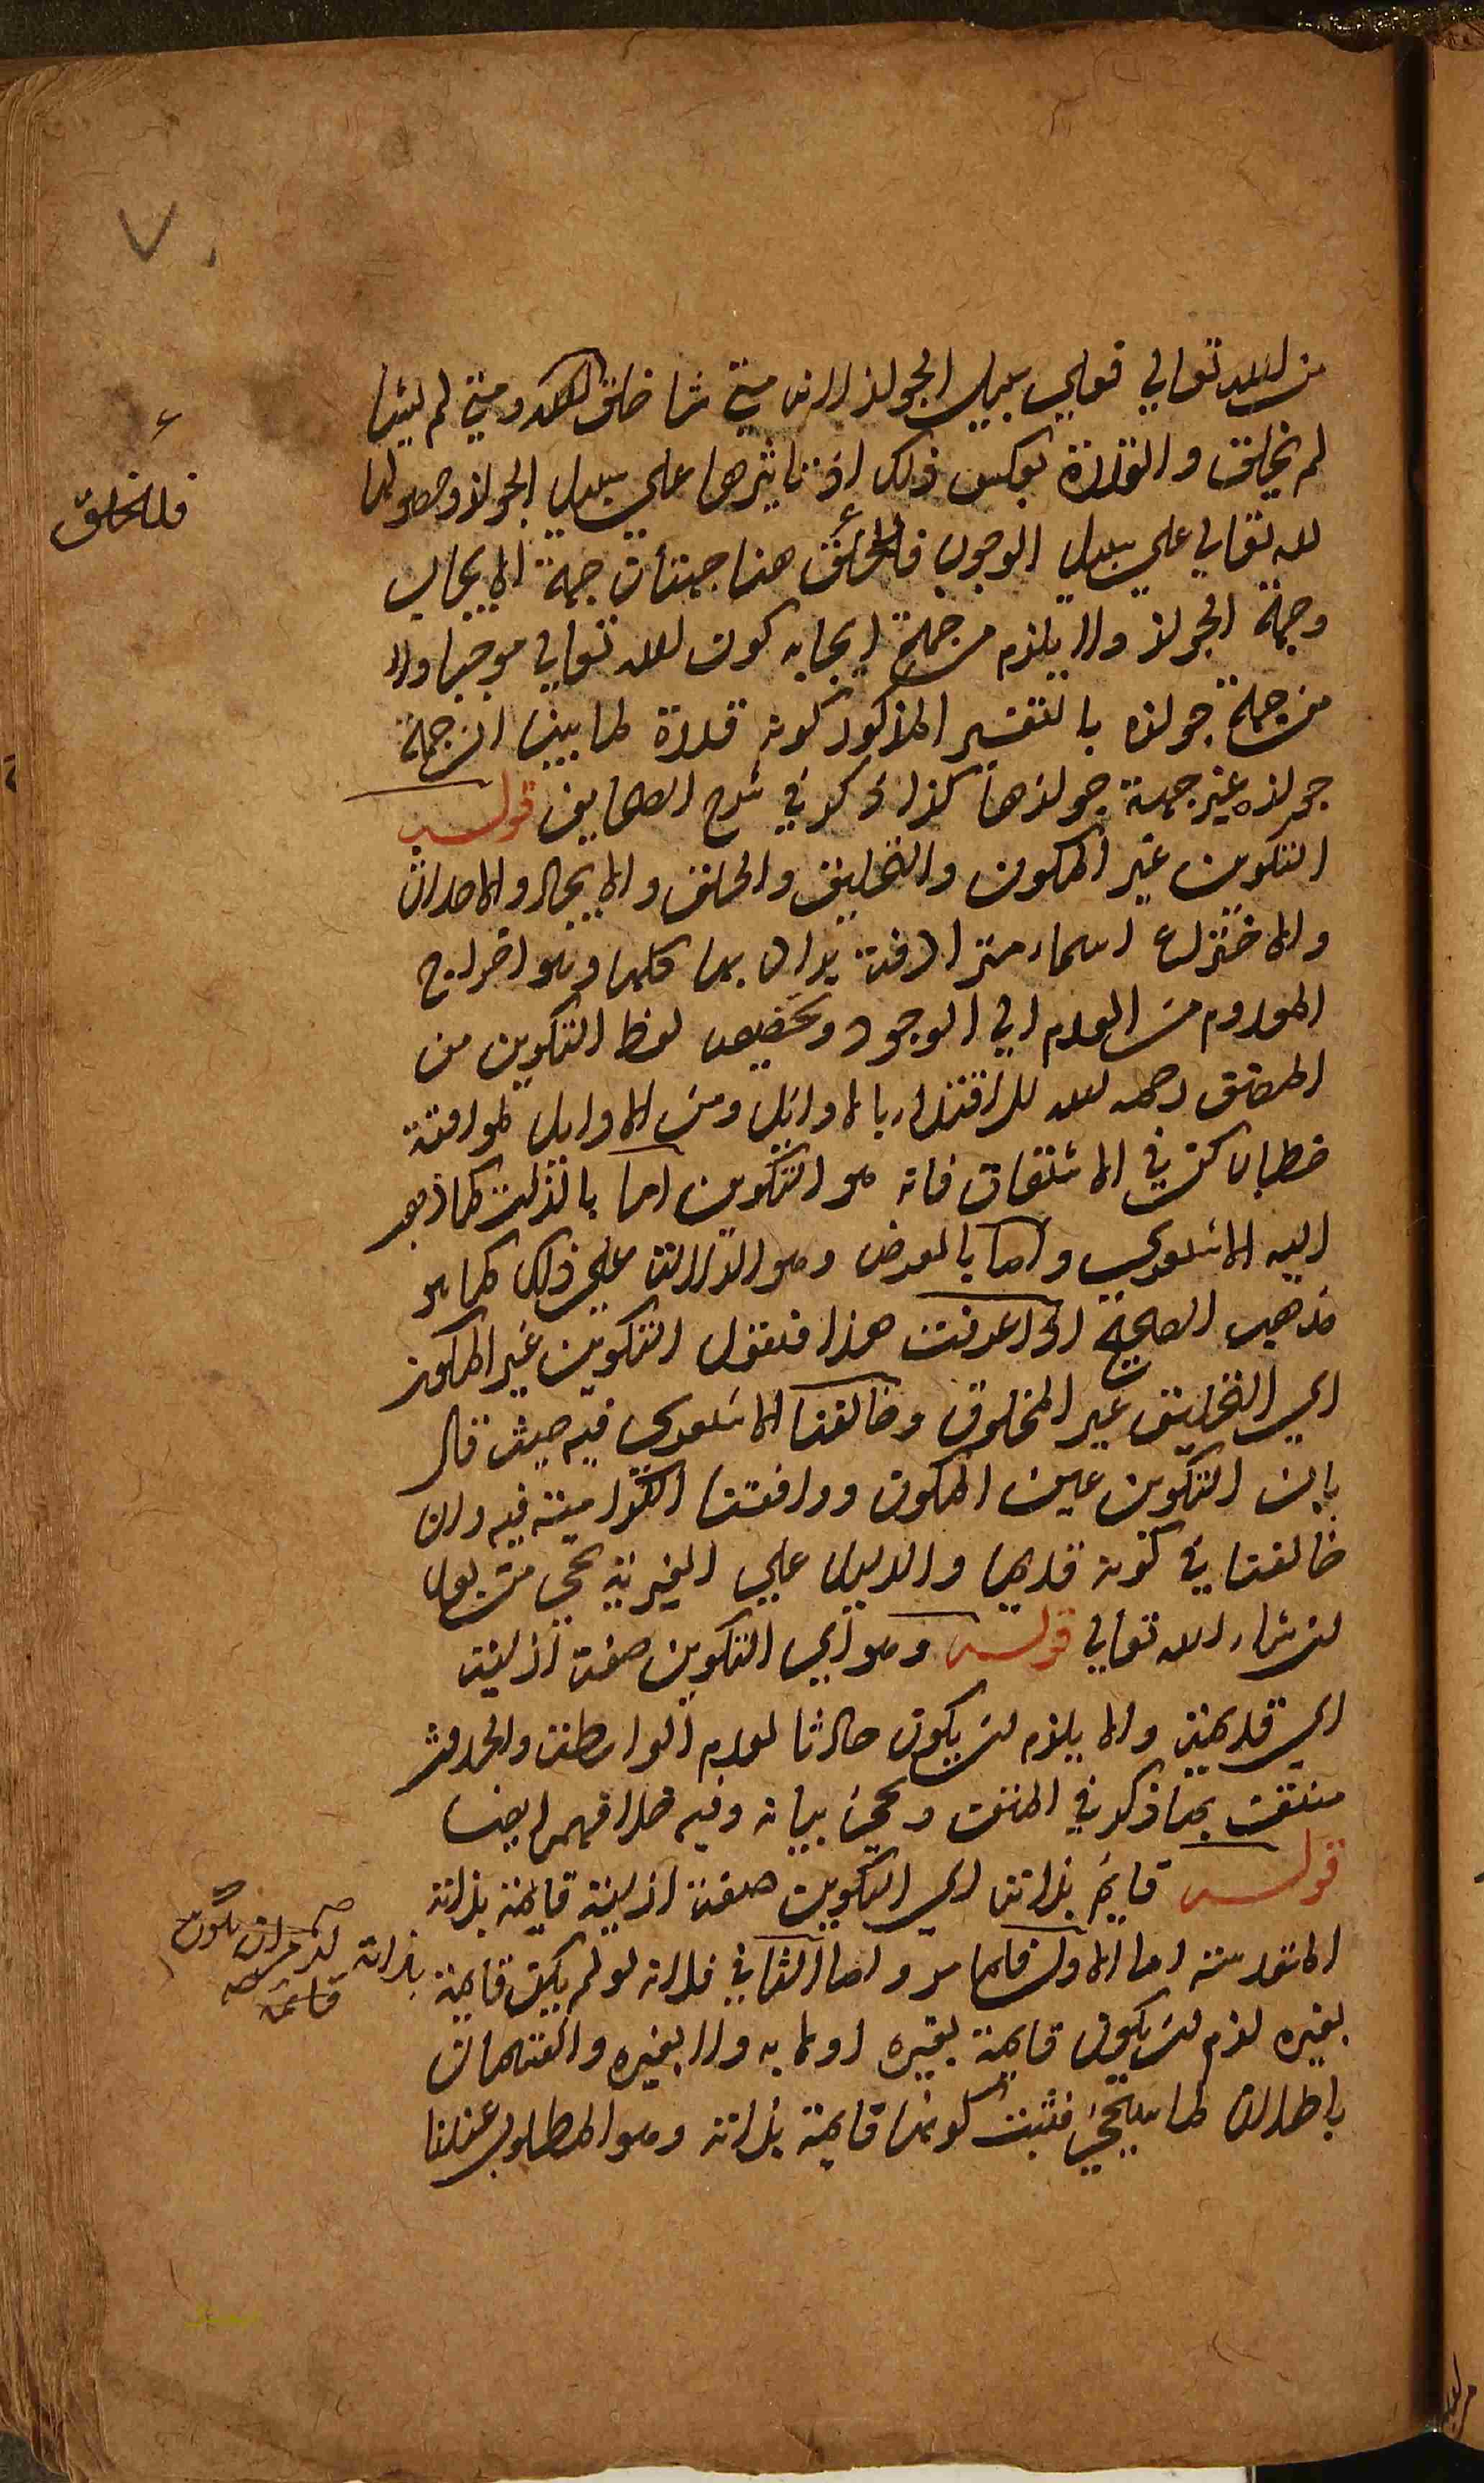 من الله تعالي فعلي سبيل الجواز لانه متي شا خلق العبد ومتي لم يشا
لم يخلق والقدرة بعكس ذلك اذ تاثيرها علي سبيل الجواز وحصولها
لله تعالي علي سبيل الوجوب فللخلق هنا جهتان جهة الايجاب
وجهة الجواز ولا يلزم من جهة ايجابه كون الله تعالي موجبا ولا
من جهة جوازه بالتفسير المذكور كونه قدرة لما بينا ان جهة
جوازه غير جهة جوازها كذا ذكر في شرح الصحايف قوله
التكوين غير المكون والتخليق والخلق والايجاد والاحداث
والاختراع اسماء مترادفة يراد بها كلها وهو اخراج
المعدوم من العدم الي الوجود وتخصيص لفظ التكوين من
المصنف رحمه الله للاقتداء بالاوائل ومن الاوايل لموافقة
خطاب كن في الاشتقاق فانه هو التكوين اما بالذات كما ذهب
اليه الاشعري واما بالعرض وهو الدلالة علي ذلك كما هو
مذهب الصحيح اذا عرفت هذا فنقول التكوين غير المكون
اي التخليق غير المخلوق وخالفنا الاشعري فيه حيث قال
بان التكوين عين المكون ووافقتنا الكرامية فيه وان
خالفتنا في كونه قديما والدليل علي الغيرية يجي من بعد
ان شاء الله تعالي قوله وهو اي التكوين صفة ازلية
اي قديمة ولا يلزم ان يكون حادثا لعدم الواسطة والحدوث
منتف بما ذكر في المتن ويجئ بيانه وفيه خلافهم ايضا
قوله قايم بذاته اي التكوين صفة ازلية قايمة بذاته
المقدسة اما الاول فلما مر واما الثاني فلانه لو لم يكن قايمة بذاته
بغيره لزم ان يكون قايمة بغيره او لا به ولا بغيره والقسمان
باطلان لما سيجئ فثبت كونها قايمة بذاته وهو المطلوب عندنا
فللخلق
لزم ان يكون
قايمة